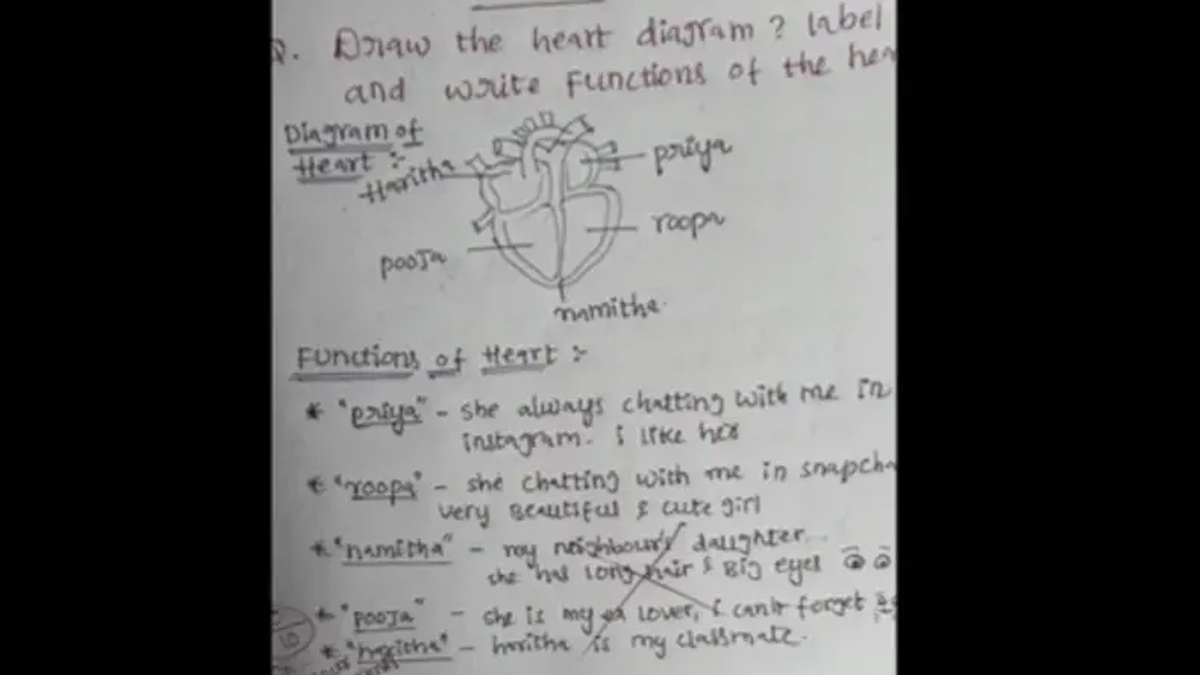 Q. Draw the heart diagram? label
and write Functions of the hea
Diagram of
Heart :-
Haritha
priya
roopa
pooja
namitha.
Functions of Heart :-
* "priya" - she always chatting with me in
instagram. i like her
* "roopa" - she chatting with me in snapcha
very Beautiful & cute girl
* "namitha" - my neighbour's daughter...
she has long hair & Big eyes
* "pooja" - she is my ex lover, i can't forget
* "haritha" - haritha is my classmate.
10